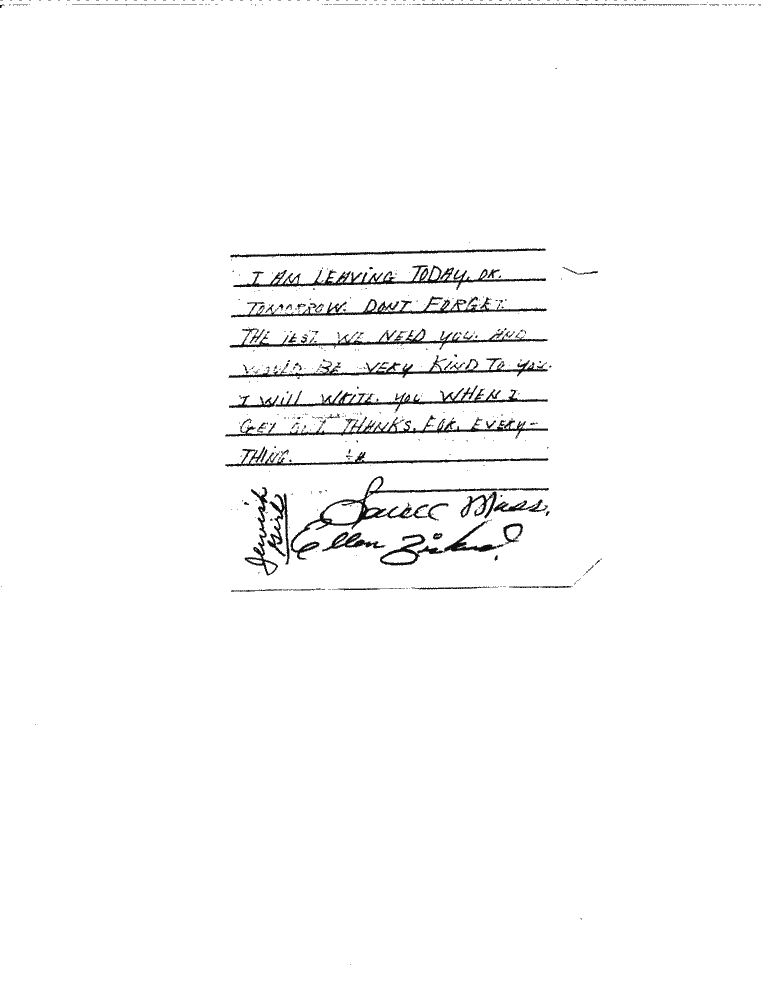 I AM LEAVING TODAY. OR.
TOMORROW. DONT FORGET.
THE TEST. WE NEED YOU. AND
WOULD BE VERY KIND TO YOU.
I WILL WRITE. YOU WHEN I
GET OUT. THANKS. FOR. EVERY-
THING.
Mass.
Ellen
Jewish
Girl